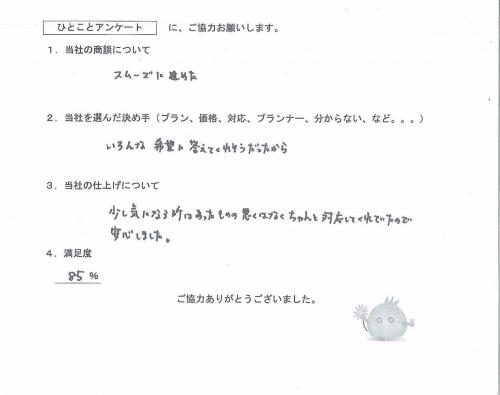 ひとことアンケート に、ご協力お願いします。
1．当社の商談について
スムーズに進めた
2．当社を選んだ決め手（プラン、価格、対応、プランナー、分からない、など。。。）
いろんな 希望に 答えてくれそうだったから
3．当社の仕上げについて
少し気になる所はあったものの悪くはなくちゃんと対応してくれていたので
安心しました。
4．満足度
85％
ご協力ありがとうございました。